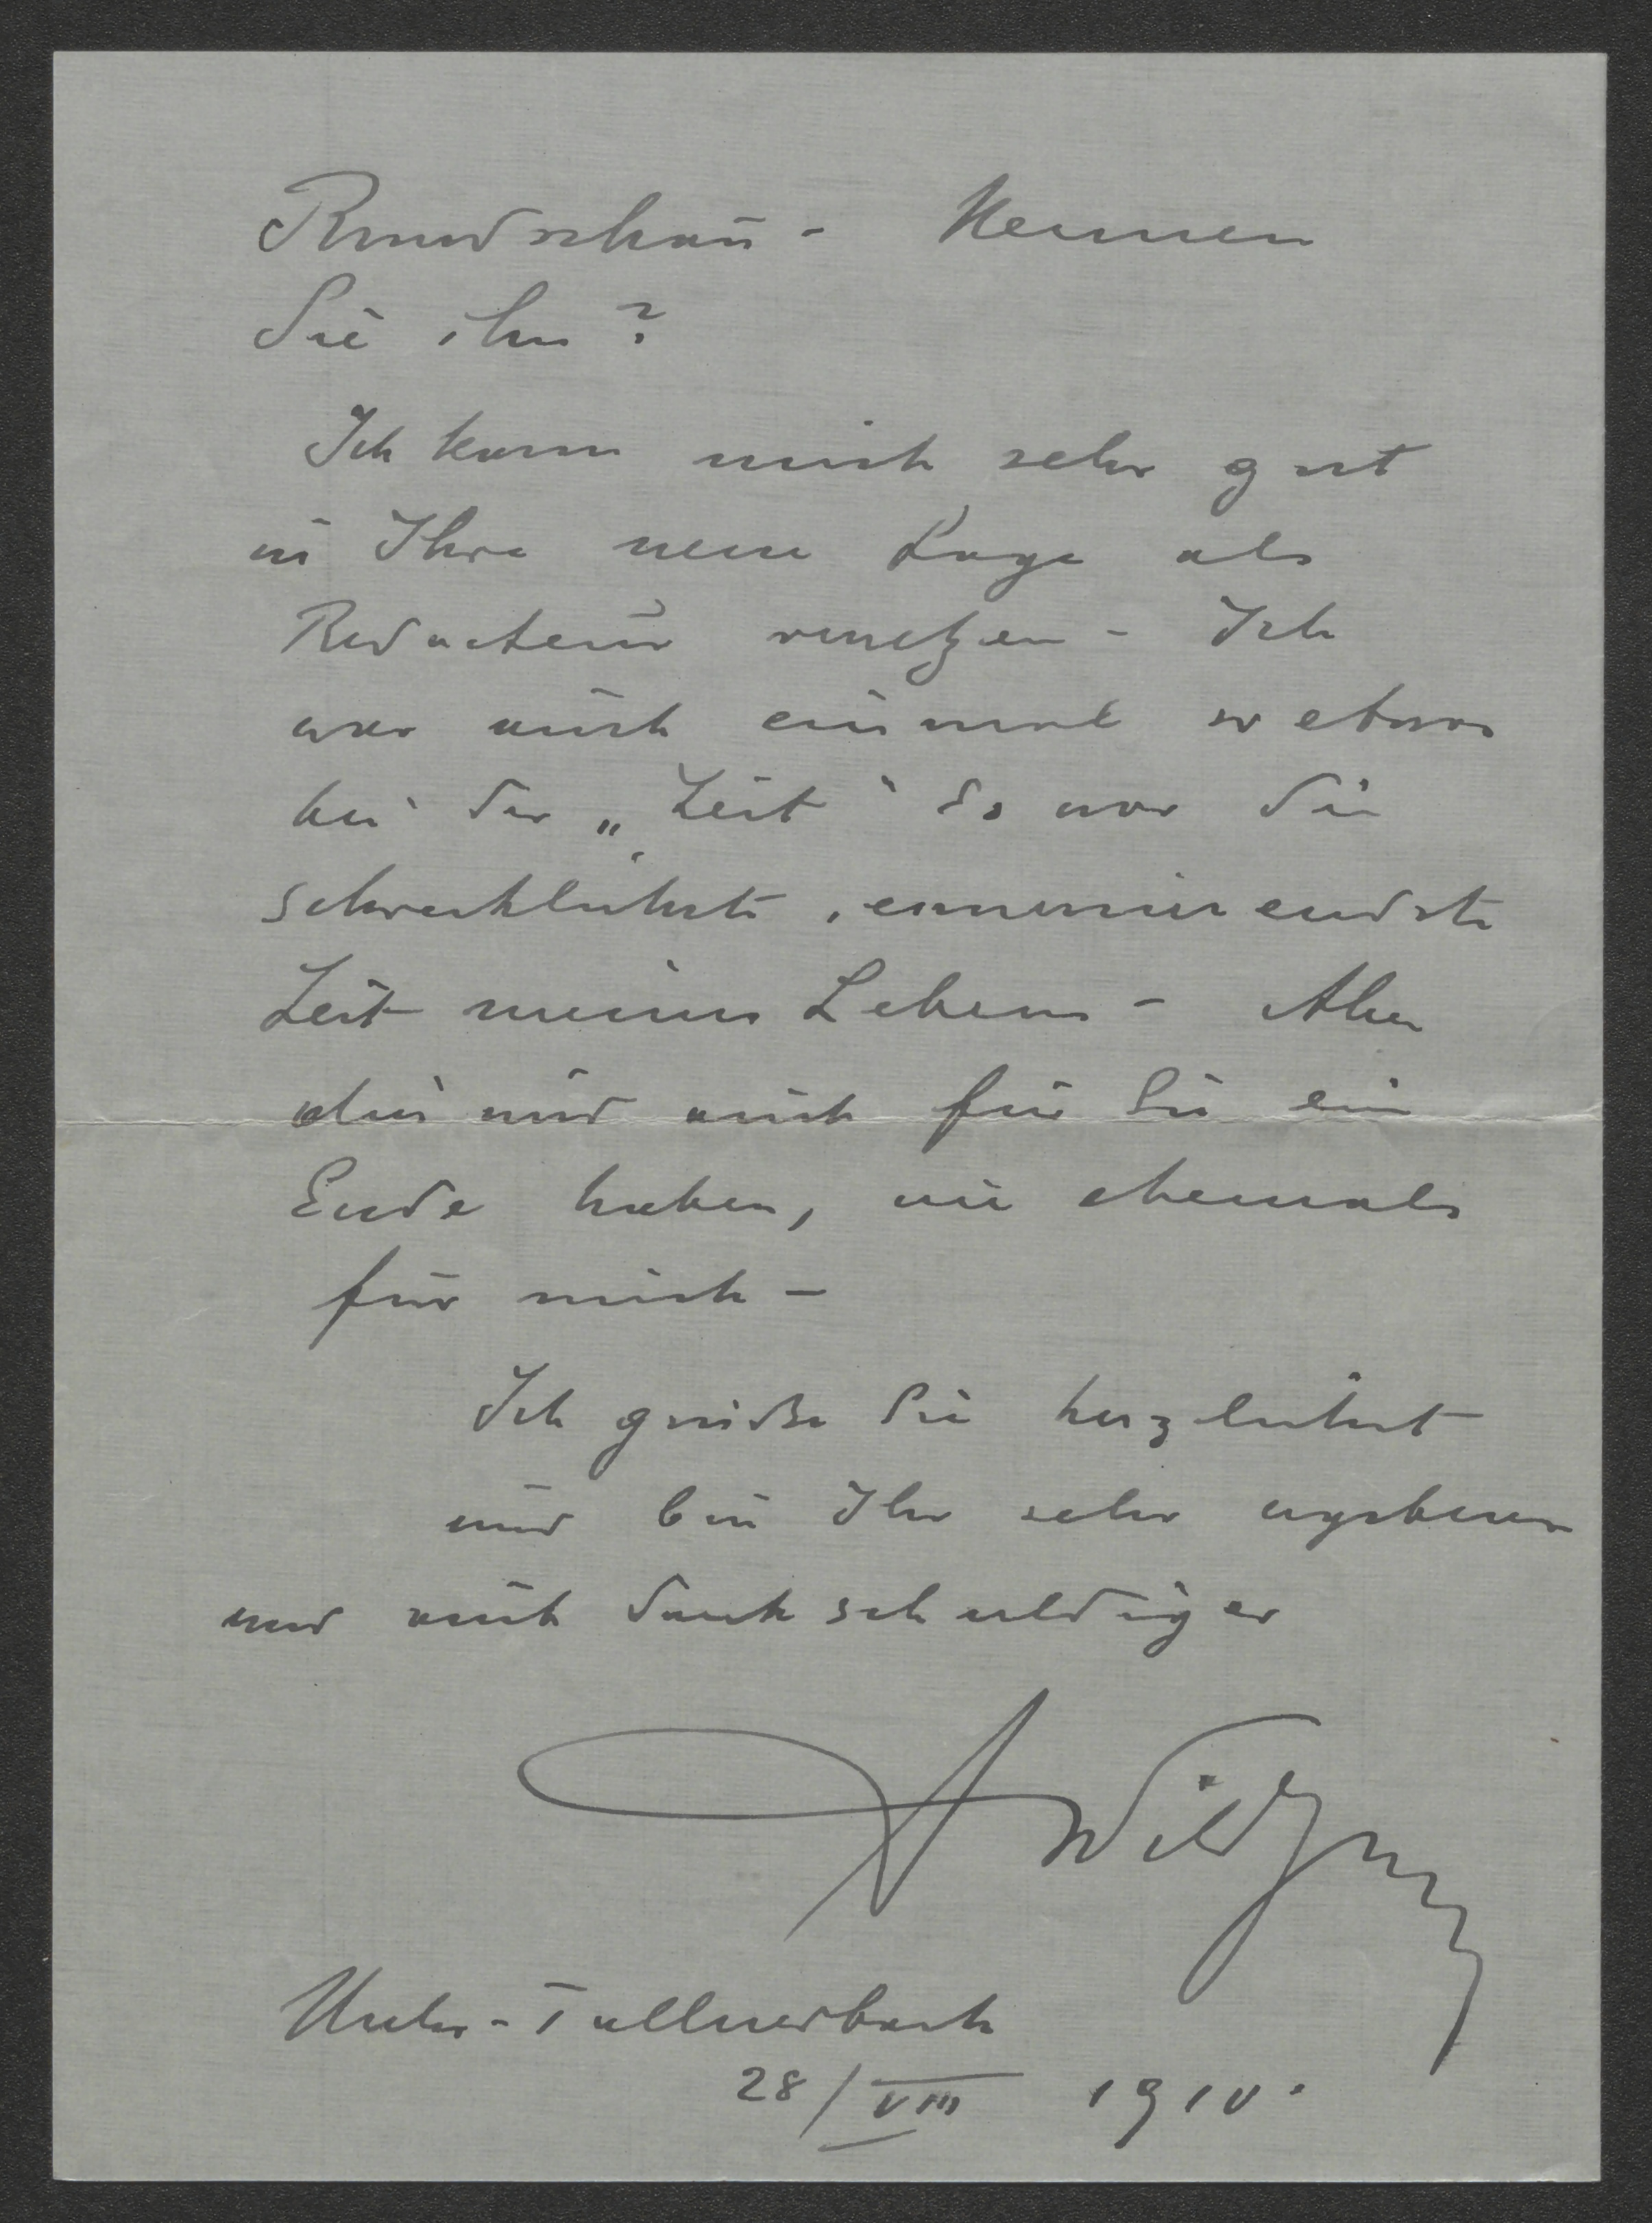 Rundschau – Kennen
Sie ihn?
Ich kann mich sehr gut
in Ihre neue Lage als
Redacteur versetzen – Ich
war auch einmal so etwas
bei der „Zeit“ Es war die
schrecklichste, ennuirendste
Zeit meines Lebens – Aber
dies wird auch für Sie ein
Ende haben, wie ehemals
für mich –
Ich grüße Sie herzlichst
und bin Ihr sehr ergebener
und auch dankschuldiger
AWildgans
Unter-Tullnerbach
28/VIII 1910.